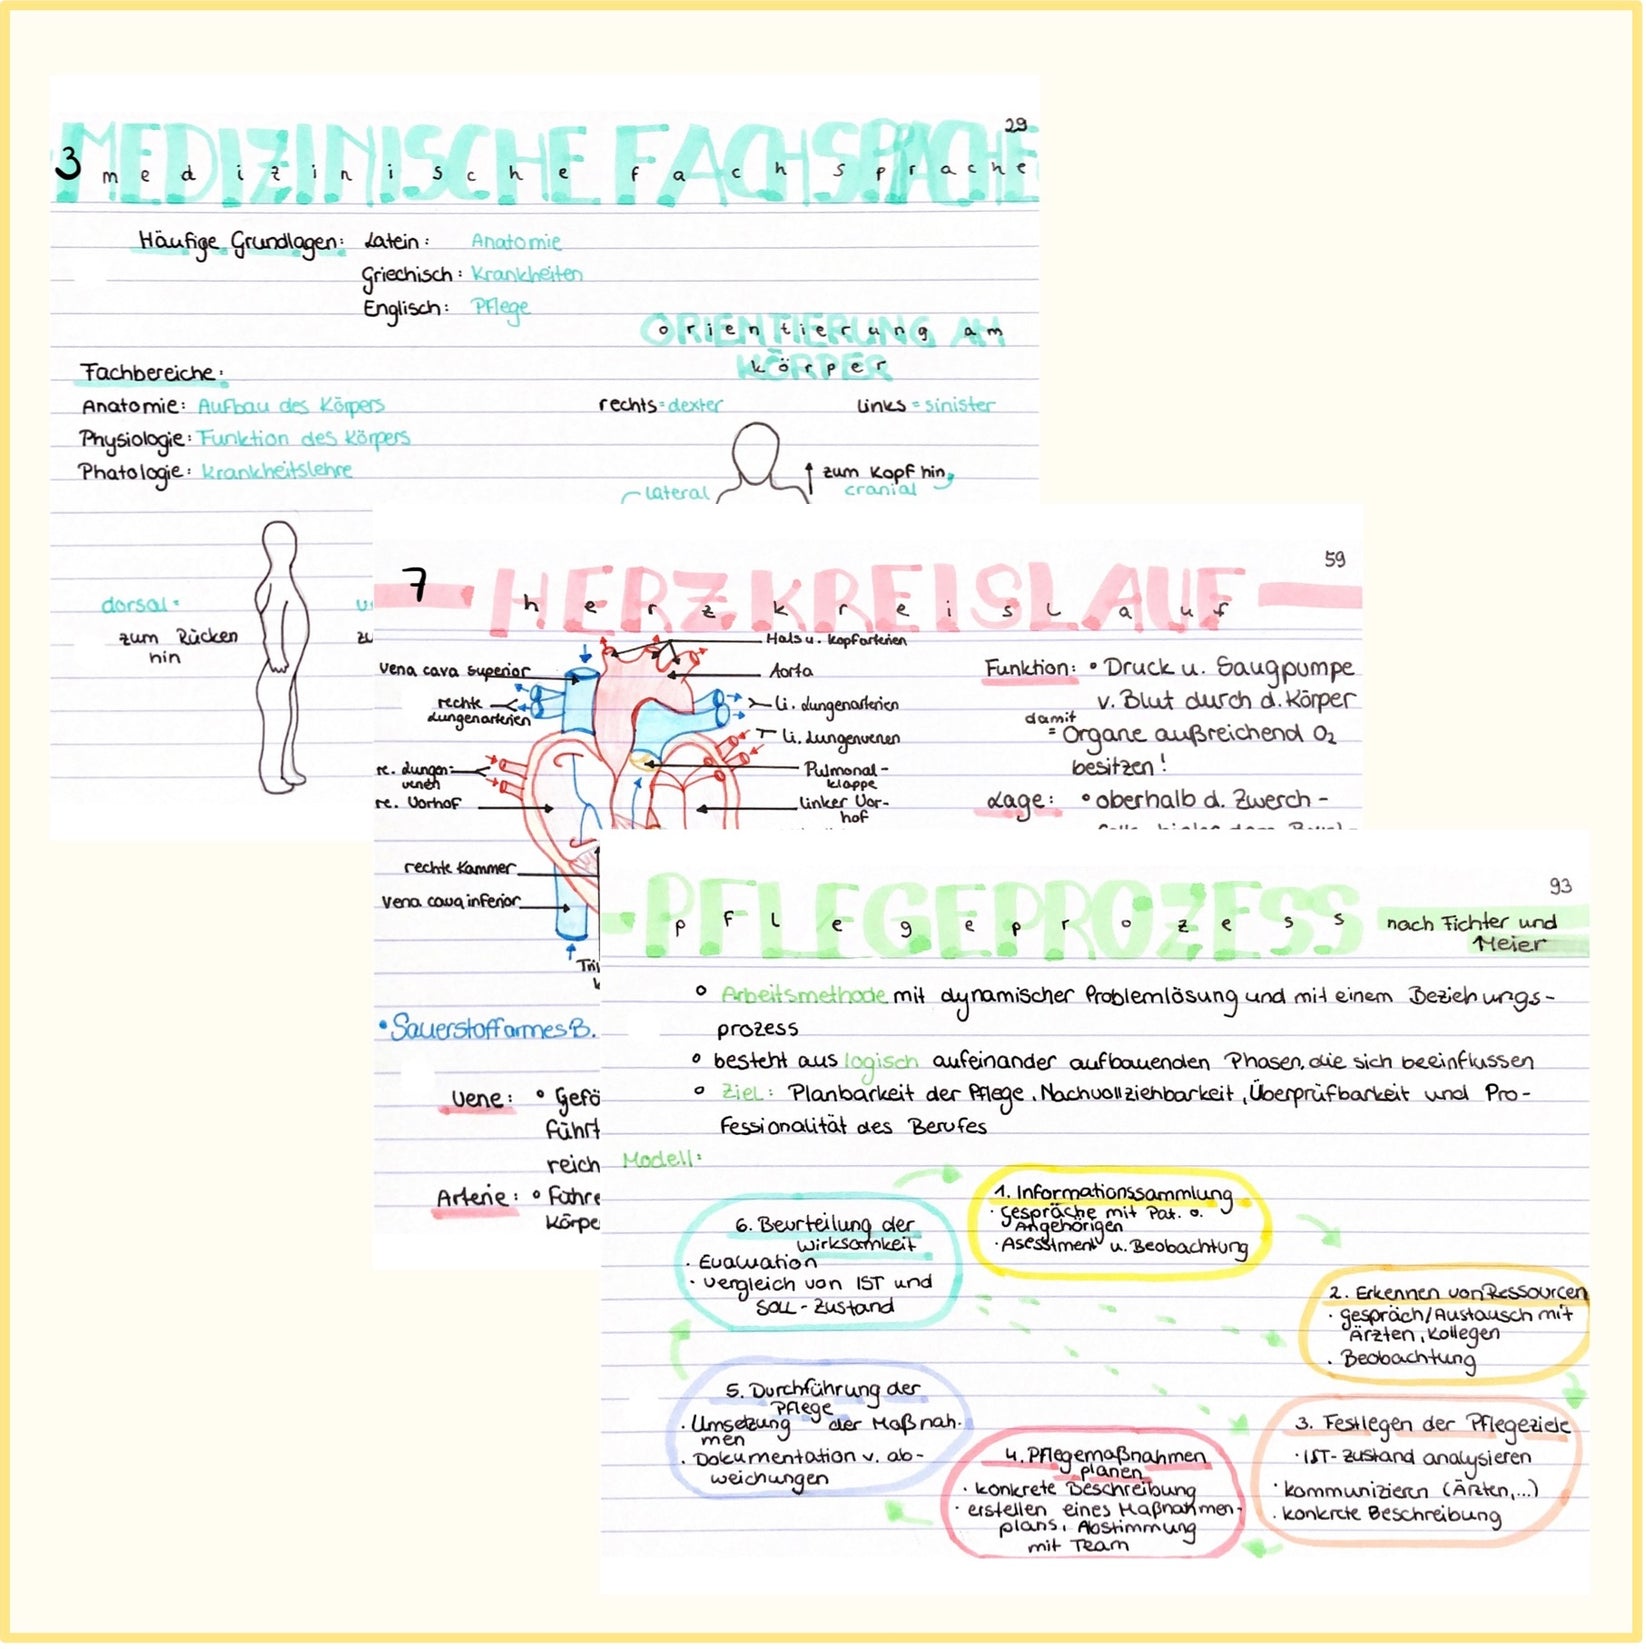 29
3 MEDIZINISCHE FACHSPRACHE
medizinische fachsprache
Häufige Grundlagen: Latein: Anatomie
Griechisch: Krankheiten
Englisch: Pflege
ORIENTIERUNG AM
orientierung am
KÖRPER
körper
Fachbereiche:
Anatomie: Aufbau des Körpers
Physiologie: Funktion des Körpers
Phatologie: Krankheitslehre
rechts = dexter
links = sinister
zum Kopf hin,
cranial
lateral
dorsal:
zum Rücken
hin
59
7 HERZKREISLAUF
herzkreislauf
Hals u. Kopfarterien
vena cava superior
Aorta
rechte
Lungenarterien
Li. Lungenarterien
Li. Lungenvenen
re. Lungen-
venen
Pulmonal-
klappe
re. Vorhof
linker Vor-
hof
rechte Kammer
vena cava inferior
Tri
Funktion: • Druck u. Saugpumpe
v. Blut durch d. Körper
damit
= Organe außreichend O₂
besitzen!
Lage: • oberhalb d. Zwerch-
• Sauerstoffarmes B.
Vene: • Gefö
führt
reich
Arterie: • Führe
Körpe
93
PFLEGEPROZESS
pflegeprozess nach Fichter und
Meier
° Arbeitsmethode mit dynamischer Problemlösung und mit einem Beziehungs-
prozess
° besteht aus logisch aufeinander aufbauenden Phasen, die sich beeinflussen
° Ziel: Planbarkeit der Pflege, Nachvollziehbarkeit, Überprüfbarkeit und Pro-
fessionalität des Berufes
Modell:
1. Informationssammlung
· Gespräche mit Pat. o.
Angehörigen
· Asesstment u. Beobachtung
2. Erkennen von Ressourcen
· Gespräch/Austausch mit
Ärzten, Kollegen
· Beobachtung
3. Festlegen der Pflegeziele
· IST-Zustand analysieren
· kommunizieren (Ärzten,...)
· konkrete Beschreibung
4. Pflegemaßnahmen
planen
· konkrete Beschreibung
· erstellen eines Maßnahmen-
plans, Abstimmung
mit Team
5. Durchführung der
Pflege
· Umsetzung der Maßnah-
men
· Dokumentation v. ab-
weichungen
6. Beurteilung der
Wirksamkeit
· Evaluation
· Vergleich von IST und
SOLL-Zustand